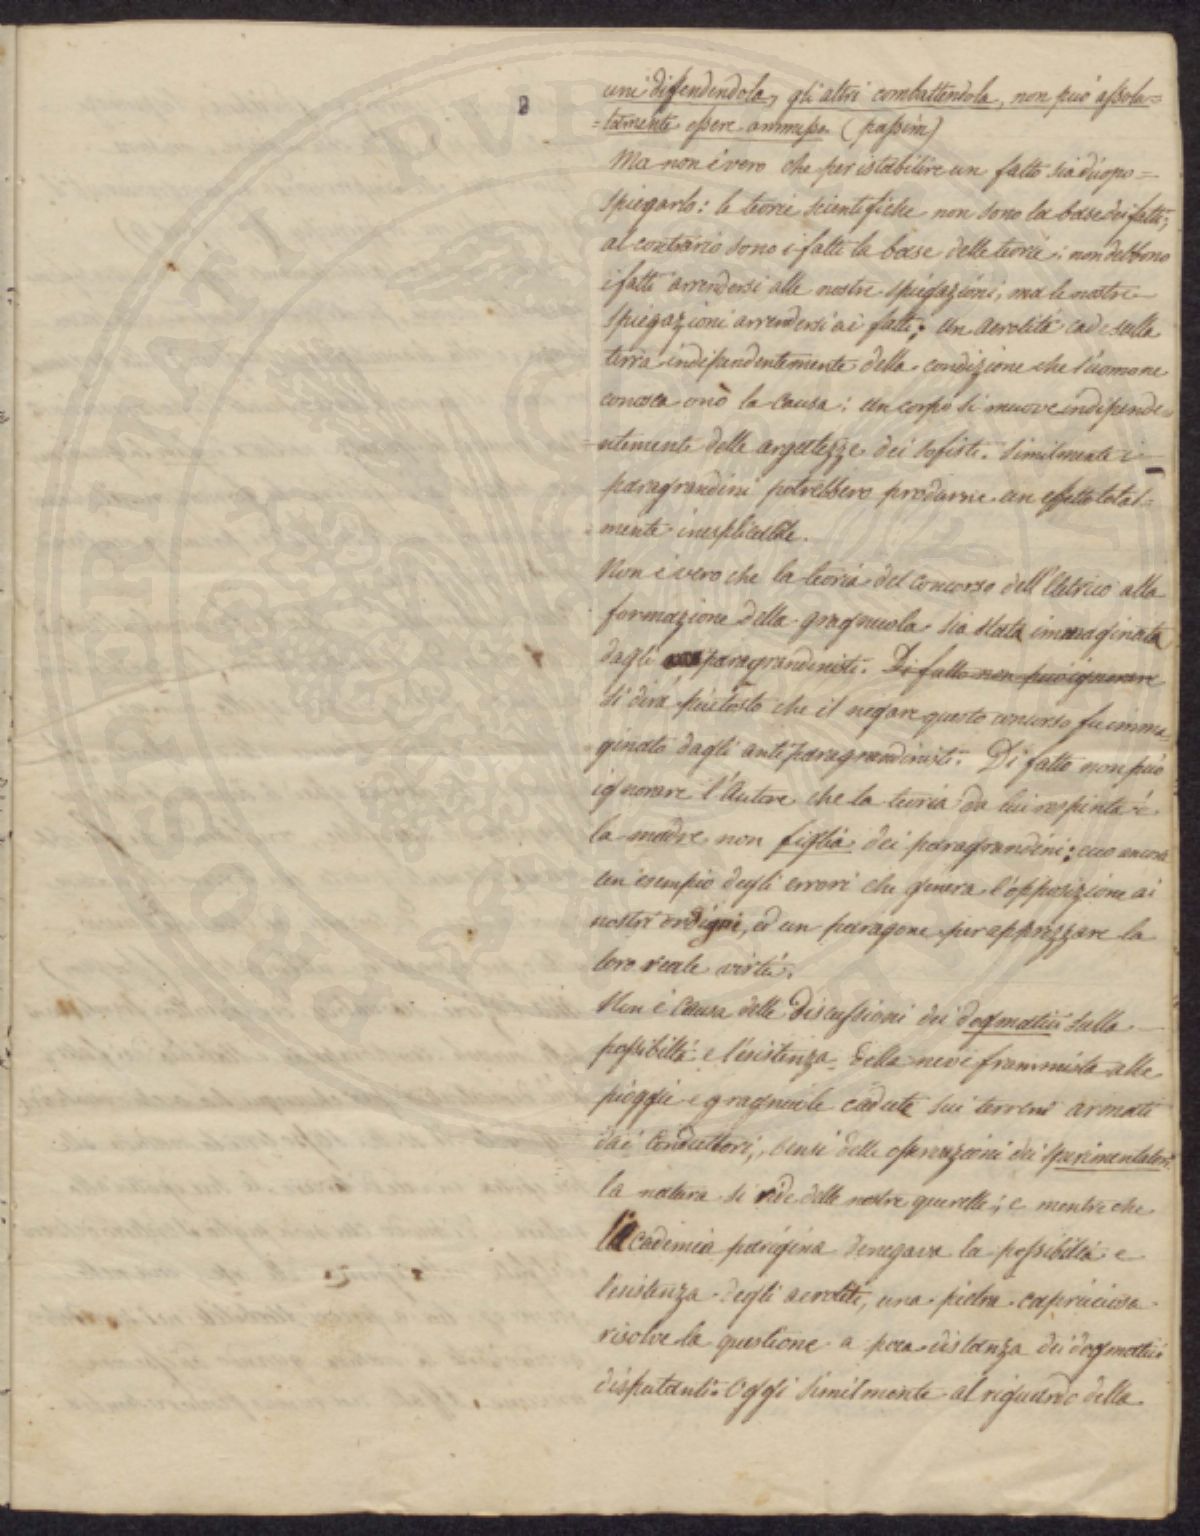 uni diffendendola, gli altri combattendola, non può assolu=
=tamente essere ammessa (passim)
Ma non è vero che per istabilire un fatto sia d'uopo=
spiegarlo: le teorie scientifiche non sono la base dei fatti;
al contrario sono i fatti la base delle teorie: non debbono
i fatti arrendersi alle nostre spiegazioni, ma le nostre
spiegazioni arrendersi ai fatti; un aerolite cade sulla
terra indipendentemente della condizione che l'uomo ne
conosca o nò la causa: un corpo si muove indipende=
=ntemente delle argutezze dei sofisti. Similmente i
paragrandini potrebbero produrre un effetto total=
=mente inesplicabile.
Non è vero che la teoria del concorso dell'eletrico alla
formazione della gragnuola sia stata immaginata
dagli paragrandinisti. Di fatto non può ignorare
si dirà piutosto che il negare questo concorso fu imma=
ginato dagli antiparagrandinisti. Di fatto non può
ignorare l'Autore che la teoria da lui respinta è
la madre non figlia dei paragrandini; ecco ancora
un esempio degli errori che genera l'opposizione ai
nostri ordigni, ed un paragone per apprezzare la
loro reale virtù.
Non è causa delle Discussioni dei dogmatici sulla
possibiltà e l'esistenza della neve frammista alle
pioggie e gragnuole cadute sui terreni armati
dai conduttori, bensi delle osservazioni dei sperimentatori.
la natura si ride delle nostre querelle; e mentre che
l'Accademia parigina denegava la possibilità e
l'esistenza degli aeroliti, una pietra capriciosa
risolve la questione a poca distanza dei dogmatici
disputanti. Oggi similmente al riguardo della